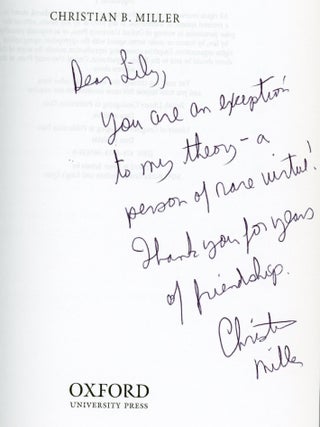 CHRISTIAN B. MILLER
Dear Lily,
You are an exception
to my theory - a
person of rare virtue!
Thank you for years
of friendship.
Christian
Miller
OXFORD
UNIVERSITY PRESS